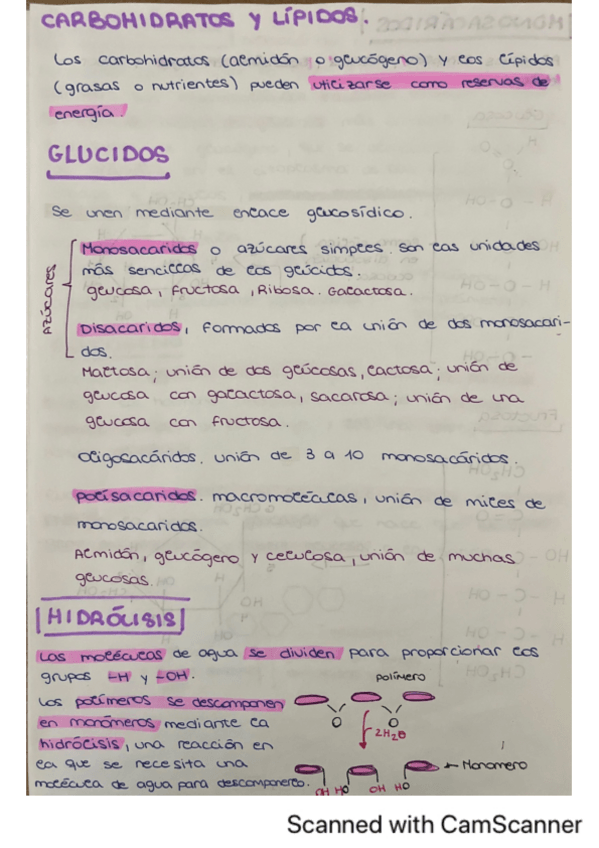 CARBOHIDRATOS Y LÍPIDOS.
Los carbohidratos (almidón o glucógeno) y los lípidos
(grasas o nutrientes) pueden utilizarse como reservas de
energía.
GLUCIDOS
Se unen mediante enlace glucosídico.
Azúcares
Monosacaridos o azúcares simples. Son las unidades
más sencillas de los glúcidos.
glucosa, fructosa, Ribosa. Galactosa.
Disacaridos, Formados por la unión de dos monosacari-
dos.
Maltosa; unión de dos glúcosas, lactosa; unión de
glucosa con galactosa, sacarosa; unión de una
glucosa con fructosa.
Oligosacáridos. unión de 3 a 10 monosacáridos.
polisacaridos. macromoléculas, unión de miles de
monosacaridos.
Almidón, glucógeno y celulosa, unión de muchas
glucosas.
HIDRÓLISIS
Las moléculas de agua se dividen para proporcionar los
grupos -H y -OH.
polímero
Los polímeros se descomponen
en monómeros mediante la
hidrólisis, una reacción en
la que se necesita una
molécula de agua para descomponerlo.
O O
2H2O
Monomero
OH HO OH HO
Scanned with CamScanner